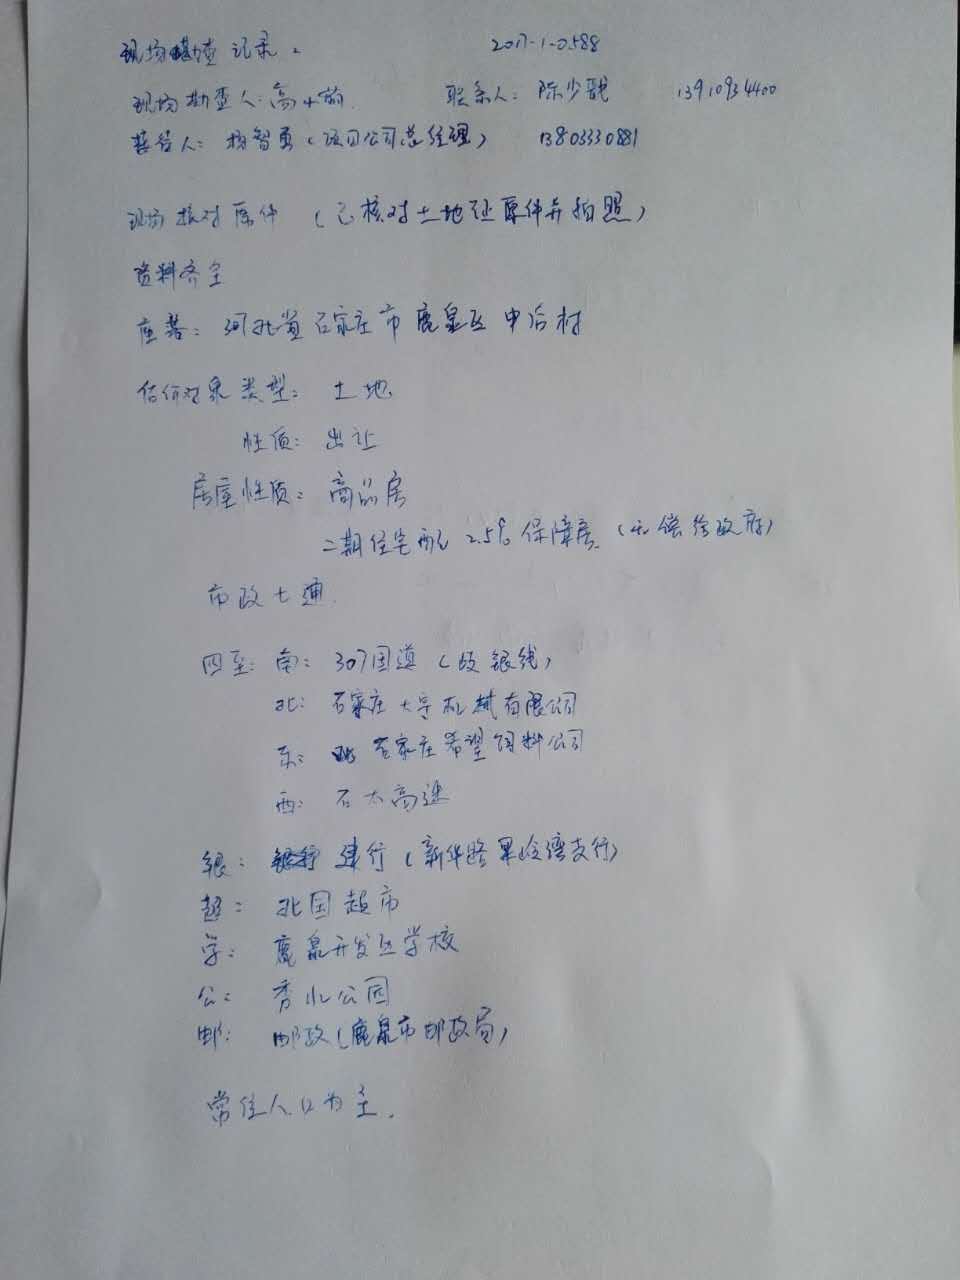 现场勘查记录: 2017-1-0588
现场勘查人: 高小前 联系人: 陈少戬 13910934400
接待人: 杨智勇(项目公司总经理) 13803330881
现场核对原件 (已核对土地证原件并拍照)
资料齐全
座落: 河北省石家庄市鹿泉区中后村
估价对象类型: 土地
性质: 出让
居室性质: 商品房
二期住宅配 2.5% 保障房 (无偿给政府)
市政七通
四至: 南: 307国道 (歧银线)
北: 石家庄大宇机械有限公司
东: 石家庄希望饲料公司
西: 石太高速
银: 建行 (新华路支行)
超: 北国超市
学: 鹿泉开发区学校
公: 秀水公园
邮: 邮政 (鹿泉市邮政局)
常住人口为主.